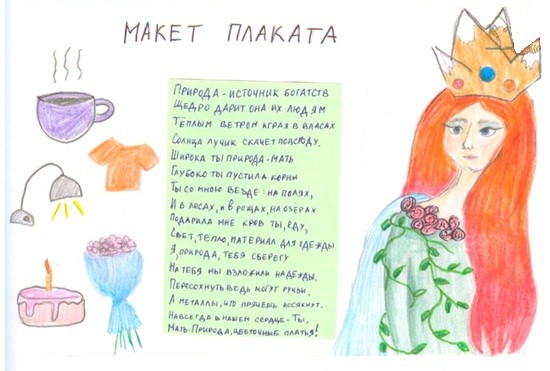 МАКЕТ ПЛАКАТА
Природа - источник богатств
Щедро дарит она их людям
Теплым ветром играя в власах
Солнца лучик скачет повсюду.
Широка ты природа-мать
Глубоко ты пустила корни
Ты со мною везде: на полях,
И в лесах, и в рощах, на озёрах
Подарила мне кров ты, еду,
Свет, тепло, материал для одежды
Я, природа, тебя сберегу
На тебя мы возложили надежды.
Пересохнуть ведь могут ручьи,
А металлы, что прячешь иссякнут.
Навсегда в нашем сердце - Ты,
Мать-Природа, цветочные платья!